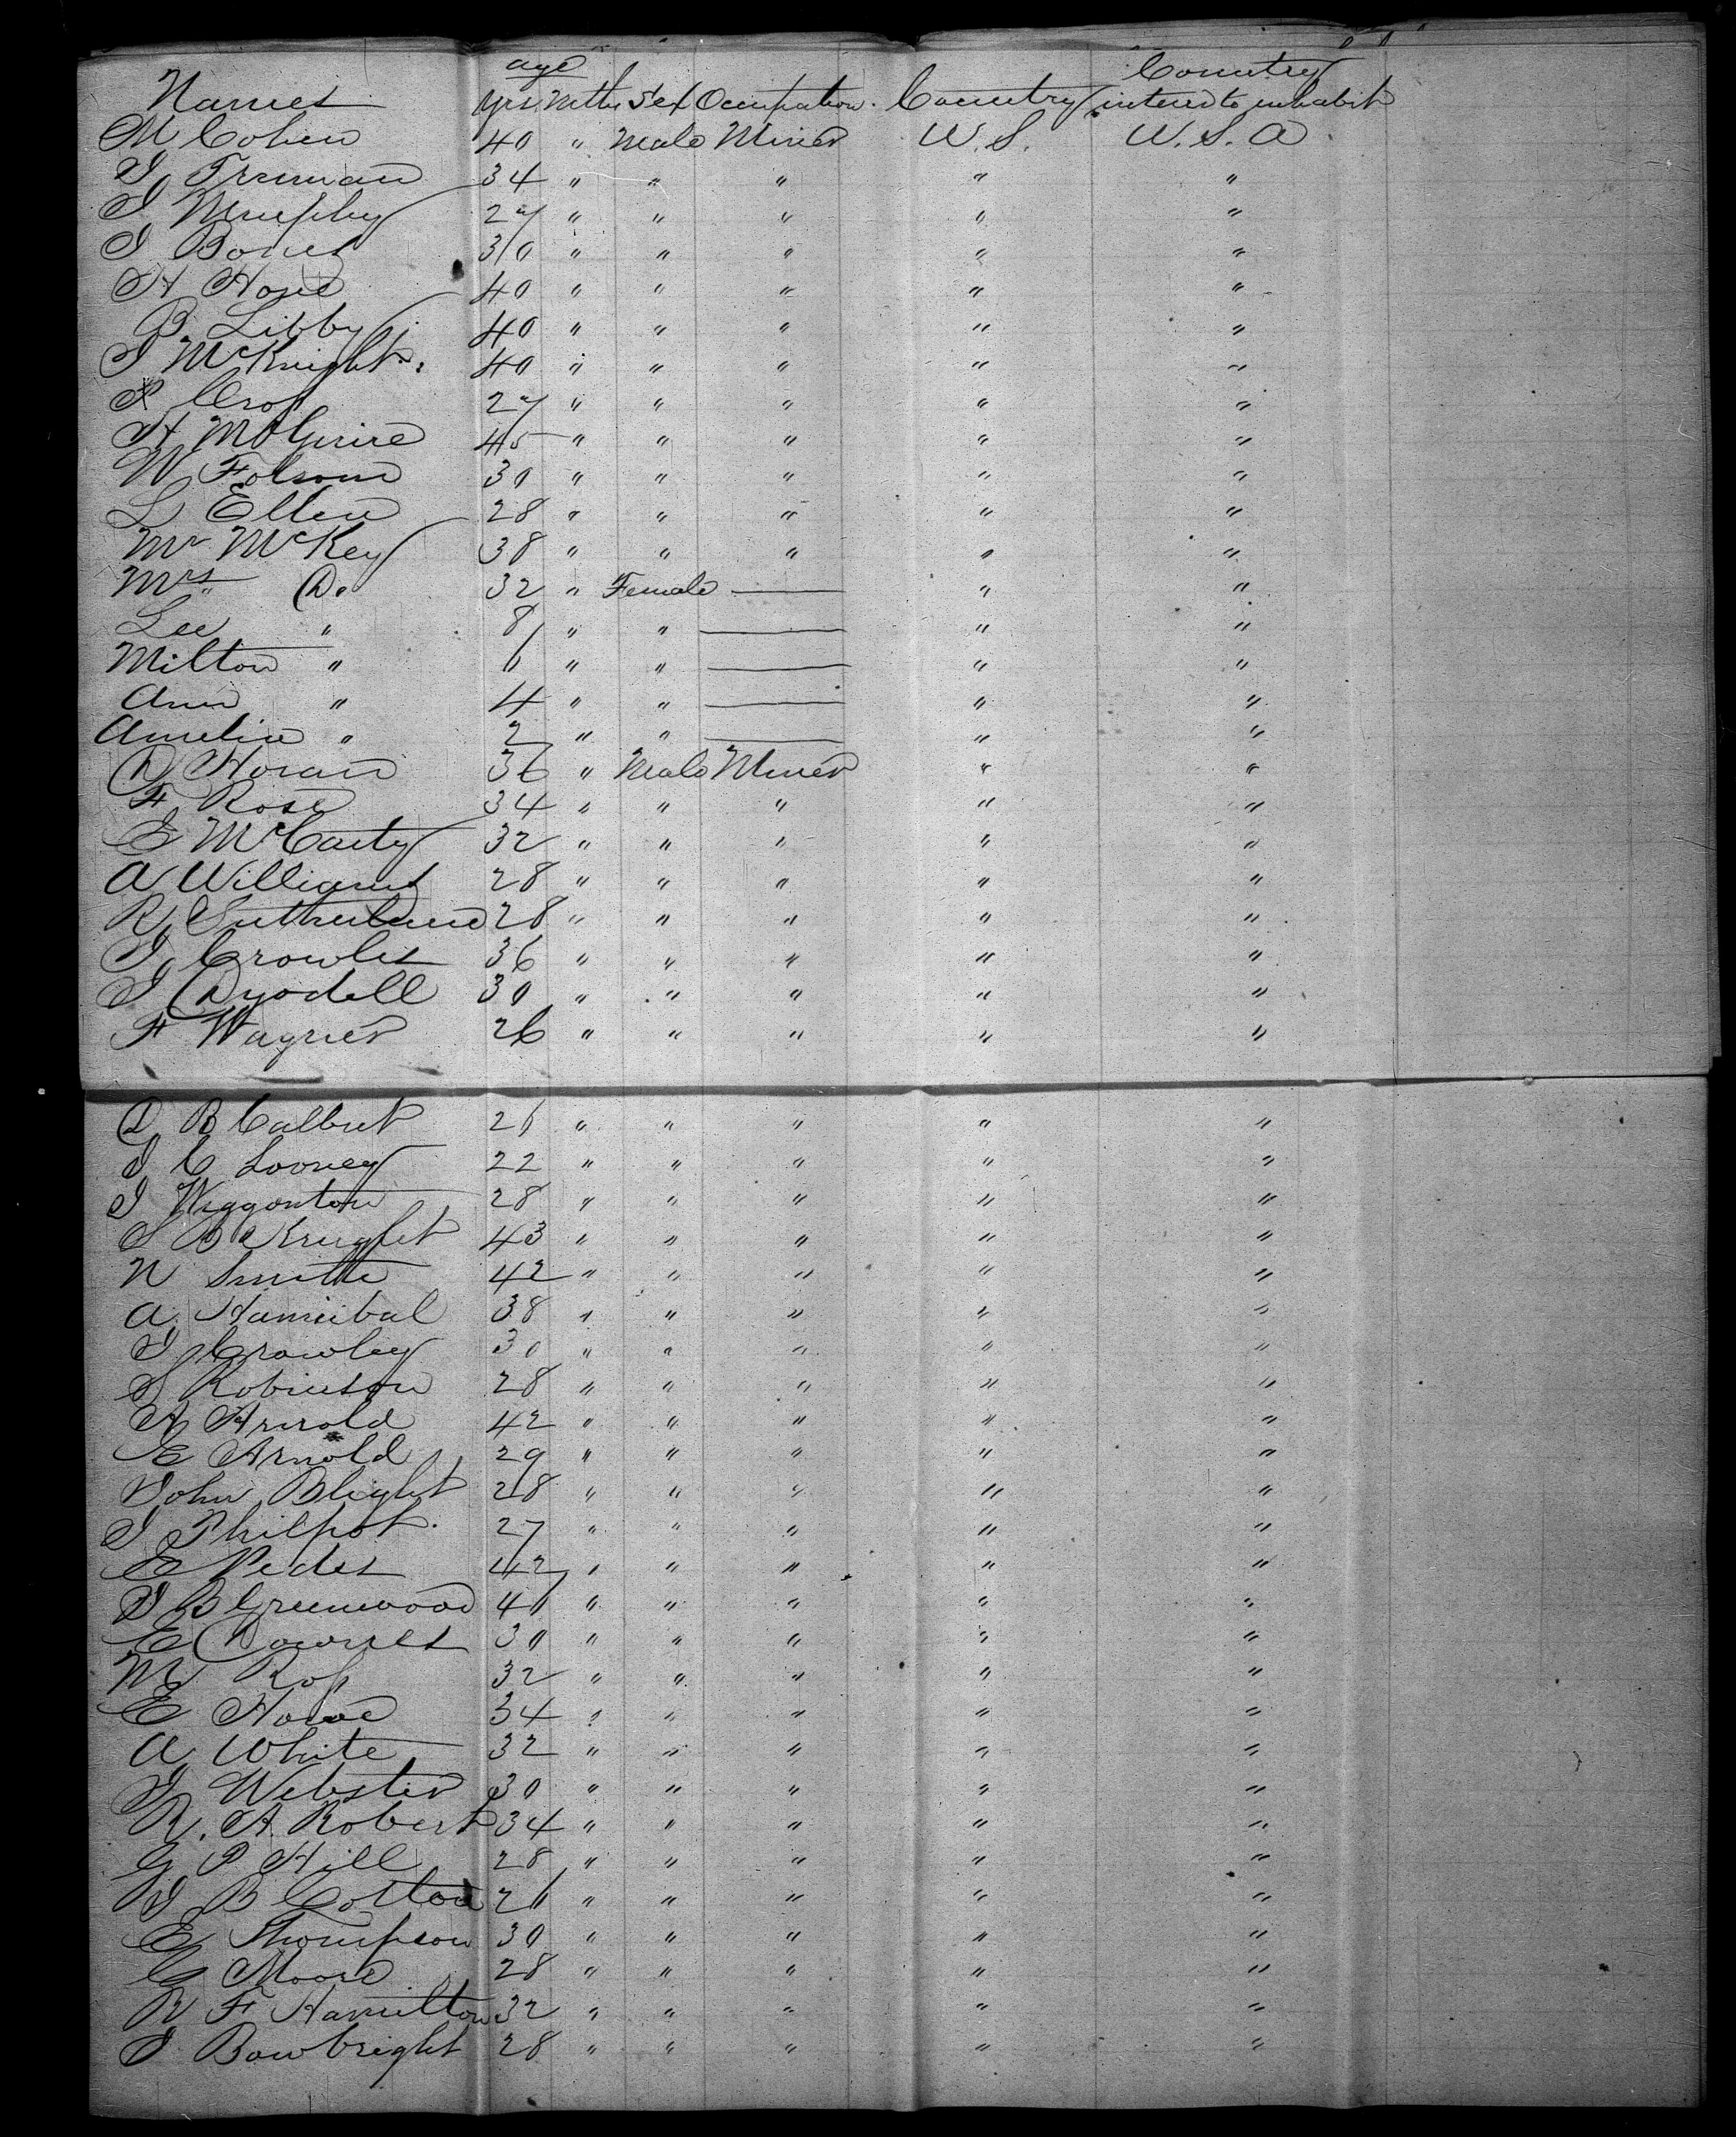 age Country
Names yrs. Mths Sex Occupation. Country intend to inhabit
M Cohen 40 " Male Miner U.S. U.S.A
J Freeman 34 " " " " "
J Murphy 27 " " " " "
J Bones 30 " " " " "
H Hone 40 " " " " "
B Libby 40 " " " " "
J McKnight 40 " " " " "
Cross 27 " " " " "
H McGuire 45 " " " " "
W Folsom 30 " " " " "
L Ellen 28 " " " " "
Mr McKey 38 " " " " "
Mrs Do 32 " Female — " "
Lee " 8 " " — " "
Milton " 6 " " — " "
Ann " 4 " " — " "
Amelia " 2 " " — " "
D Horan 36 " Male Miner " "
F Rose 34 " " " " "
E McCarty 32 " " " " "
A Williams 28 " " " " "
R Sutherland 28 " " " " "
J Crowles 36 " " " " "
J Dyodell 30 " " " " "
F Wagner 26 " " " " "
D B Calbret 26 " " " " "
J C Looney 22 " " " " "
J Wiggonton 28 " " " " "
S B Knight 43 " " " " "
N Smith 42 " " " " "
A Hannibal 38 " " " " "
J Crowley 30 " " " " "
S Robinson 28 " " " " "
A Arnold 42 " " " " "
E Arnold 29 " " " " "
John Blight 28 " " " " "
J Philpot. 27 " " " " "
E Vedes 42 " " " " "
J B Greenwood 46 " " " " "
E Downes 30 " " " " "
M Ross 32 " " " " "
E Howe 34 " " " " "
A White 32 " " " " "
J Webster 30 " " " " "
R. A. Robert 34 " " " " "
G P Hill 28 " " " " "
J B Colton 26 " " " " "
E Thompson 30 " " " " "
C Moore 28 " " " " "
R F Hamilton 32 " " " " "
J Bowbright 28 " " " " "